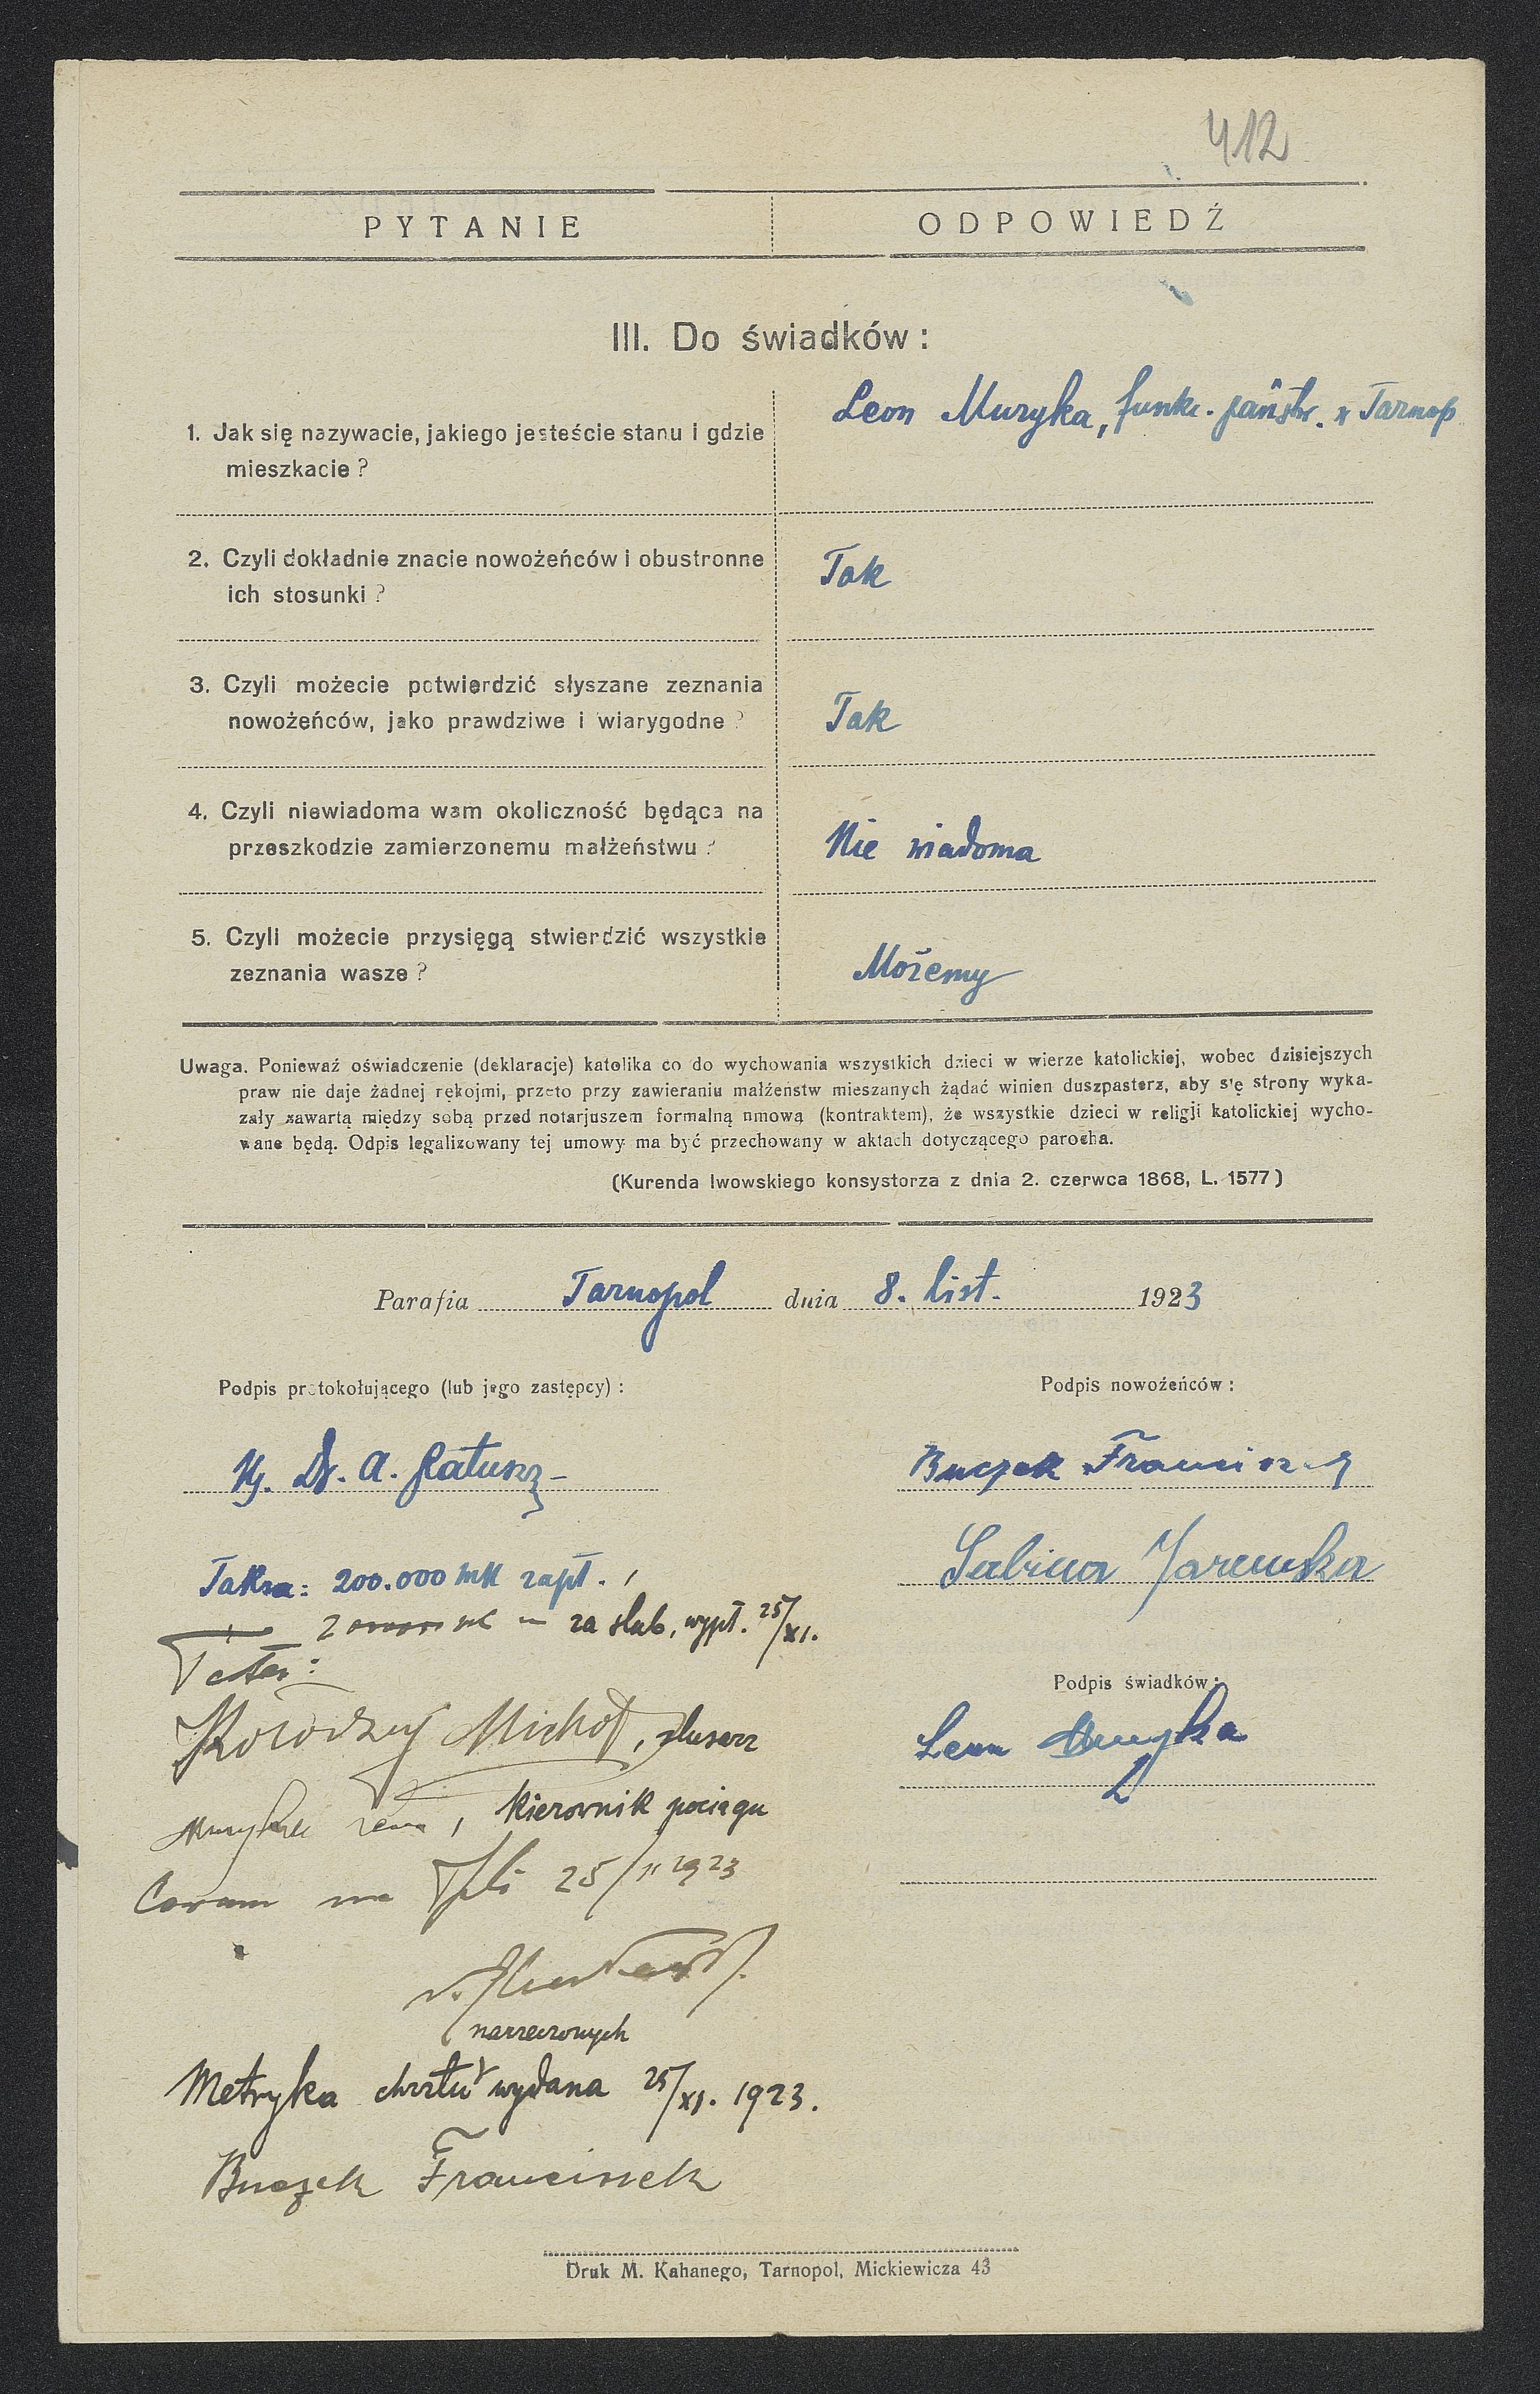 412
PYTANIE ODPOWIEDŹ
III. Do świadków:
1. Jak się nazywacie, jakiego jesteście stanu i gdzie
mieszkacie?
Leon Muzyka, funkc. państw. w Tarnop
2. Czyli dokładnie znacie nowożeńców i obustronne
ich stosunki?
Tak
3. Czyli możecie potwierdzić słyszane zeznania
nowożeńców, jako prawdziwe i wiarygodne?
Tak
4. Czyli niewiadoma wam okoliczność będąca na
przeszkodzie zamierzonemu małżeństwu?
Nie wiadoma
5. Czyli możecie przysięgą stwierdzić wszystkie
zeznania wasze?
Możemy
Uwaga. Ponieważ oświadczenie (deklaracje) katolika co do wychowania wszystkich dzieci w wierze katolickiej, wobec dzisiejszych
praw nie daje żadnej rękojmi, przeto przy zawieraniu małżeństw mieszanych żądać winien duszpasterz, aby się strony wyka-
zały zawartą między sobą przed notarjuszem formalną umową (kontraktem), że wszystkie dzieci w religji katolickiej wycho-
wane będą. Odpis legalizowany tej umowy ma być przechowany w aktach dotyczącego parocha.
(Kurenda lwowskiego konsystorza z dnia 2. czerwca 1868, L. 1577)
Parafia Tarnopol dnia 8. list. 1923
Podpis protokołującego (lub jego zastępcy):
Podpis nowożeńców:
Dr. A.
Buczek Franciszek
Sabina Jaremska
Taksa: 200.000 mk zapł.
za ślub, wypł. 25/XI.
Testes:
Podpis świadków:
Kołodziej Michał, ślusarz
Leon Muzyka
Muzyka Leon, kierownik pociągu
Coram me 25/11 1923
narzeczonych
Metryka chrztu wydana 25/XI. 1923.
Buczek Franciszek
Druk M. Kahanego, Tarnopol, Mickiewicza 43